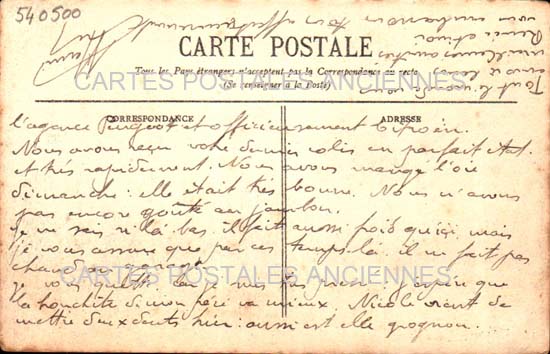 540500
CARTE POSTALE
Tous les Pays étrangers n'acceptent pas la Correspondance au recto
(Se renseigner à la Poste)
CARTES POSTALES ANCIENNES
CORRESPONDANCE
ADRESSE
l'agence Peugeot et officieusement Citroën.
Nous avons reçu votre dernier colis en parfait état
et très rapidement. Nous avons mangé l'oie
dimanche : elle était très bonne. Nous n'avons
pas encore goûté au jambon.
Je ne sais si là bas il fait aussi froid qu'ici, mais
je vous assure que par ces temps là il ne fait pas
chaud au
CARTES POSTALES ANCIENNES
vous car je J'espère que
la bronchite de mon père va mieux. Nicole vient de
mettre deux dents hier : aussi est elle grognon.
Tout le
meilleures
Renée et moi
vous embrassons bien affectueusement